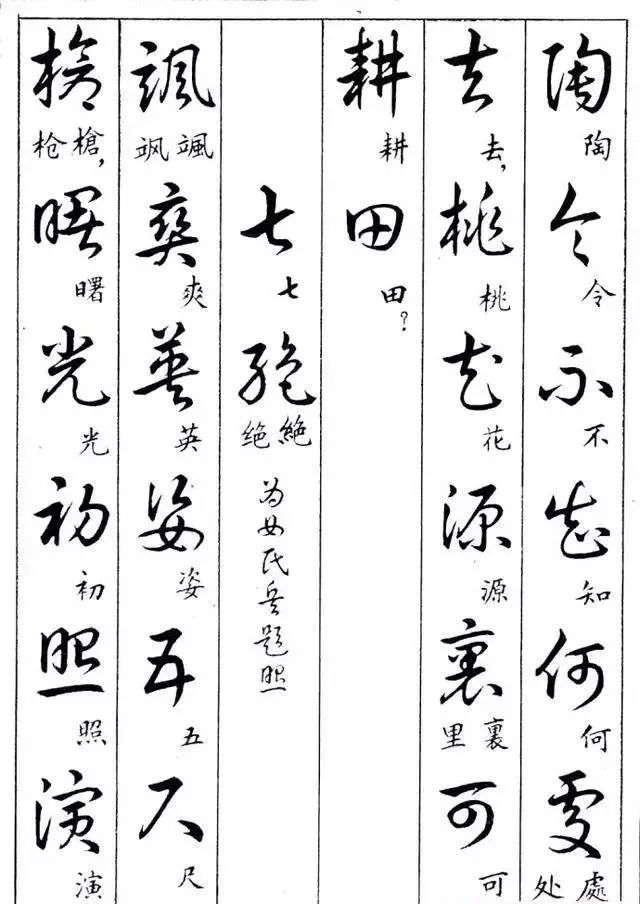 陶令不知何處
陶 令 不 知 何 處处
去桃花源裏可
去, 桃 花 源 裏里 可
耕田
耕 田?
七絕
七 絕绝
为女民兵题照
颯爽英姿五尺
颯飒 爽 英 姿 五 尺
槍曙光初照演
槍,枪 曙 光 初 照 演